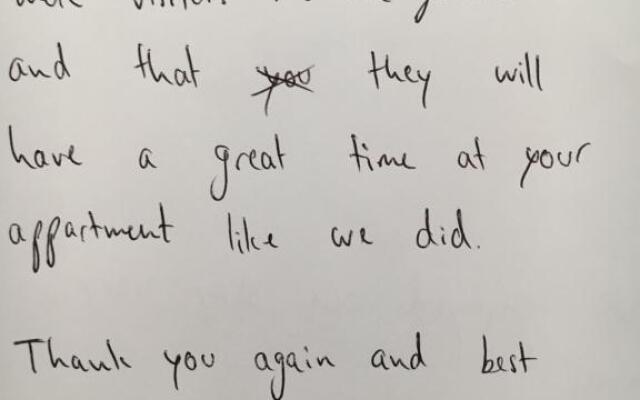 and that you they will
have a great time at your
appartment like we did.
Thank you again and best